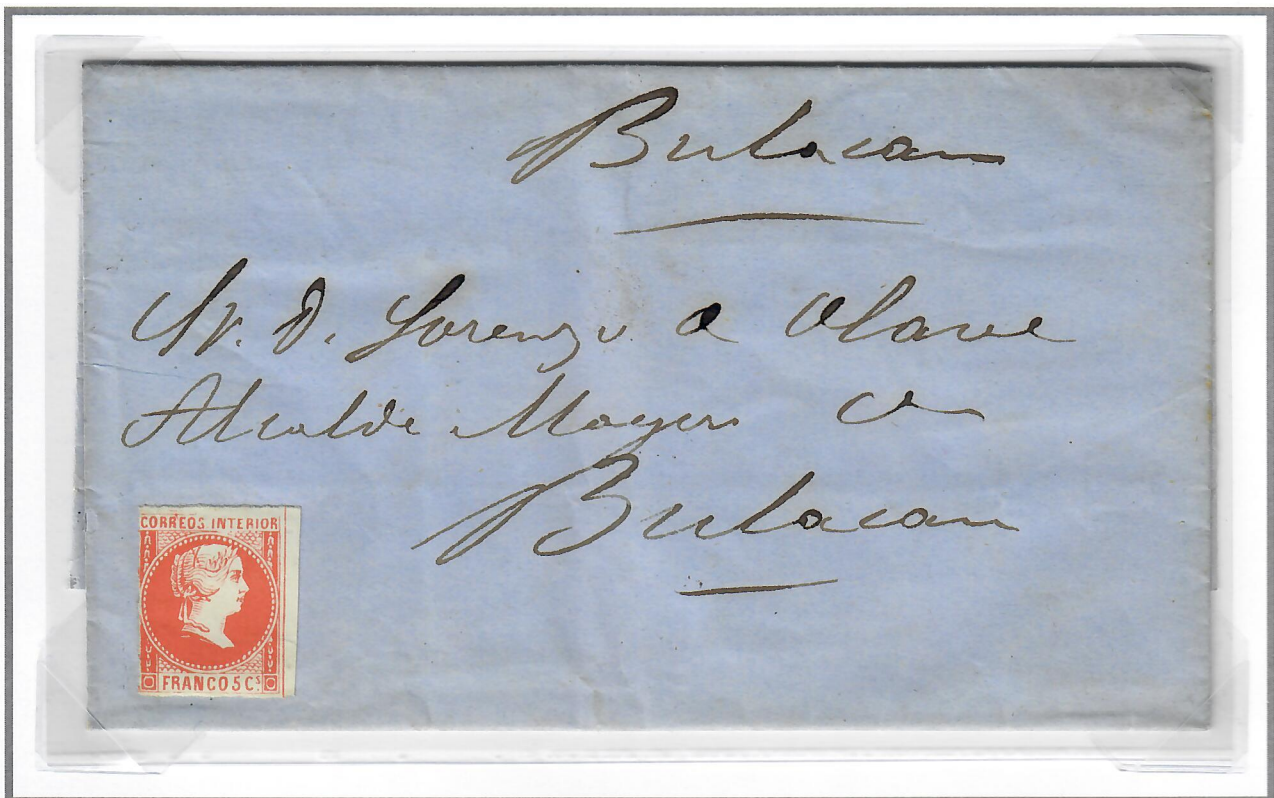 Bulacan
Sr. D. Lorenzo a Olave
Alcalde Mayor de
Bulacan
CORREOS INTERIOR
FRANCO 5 Cs.